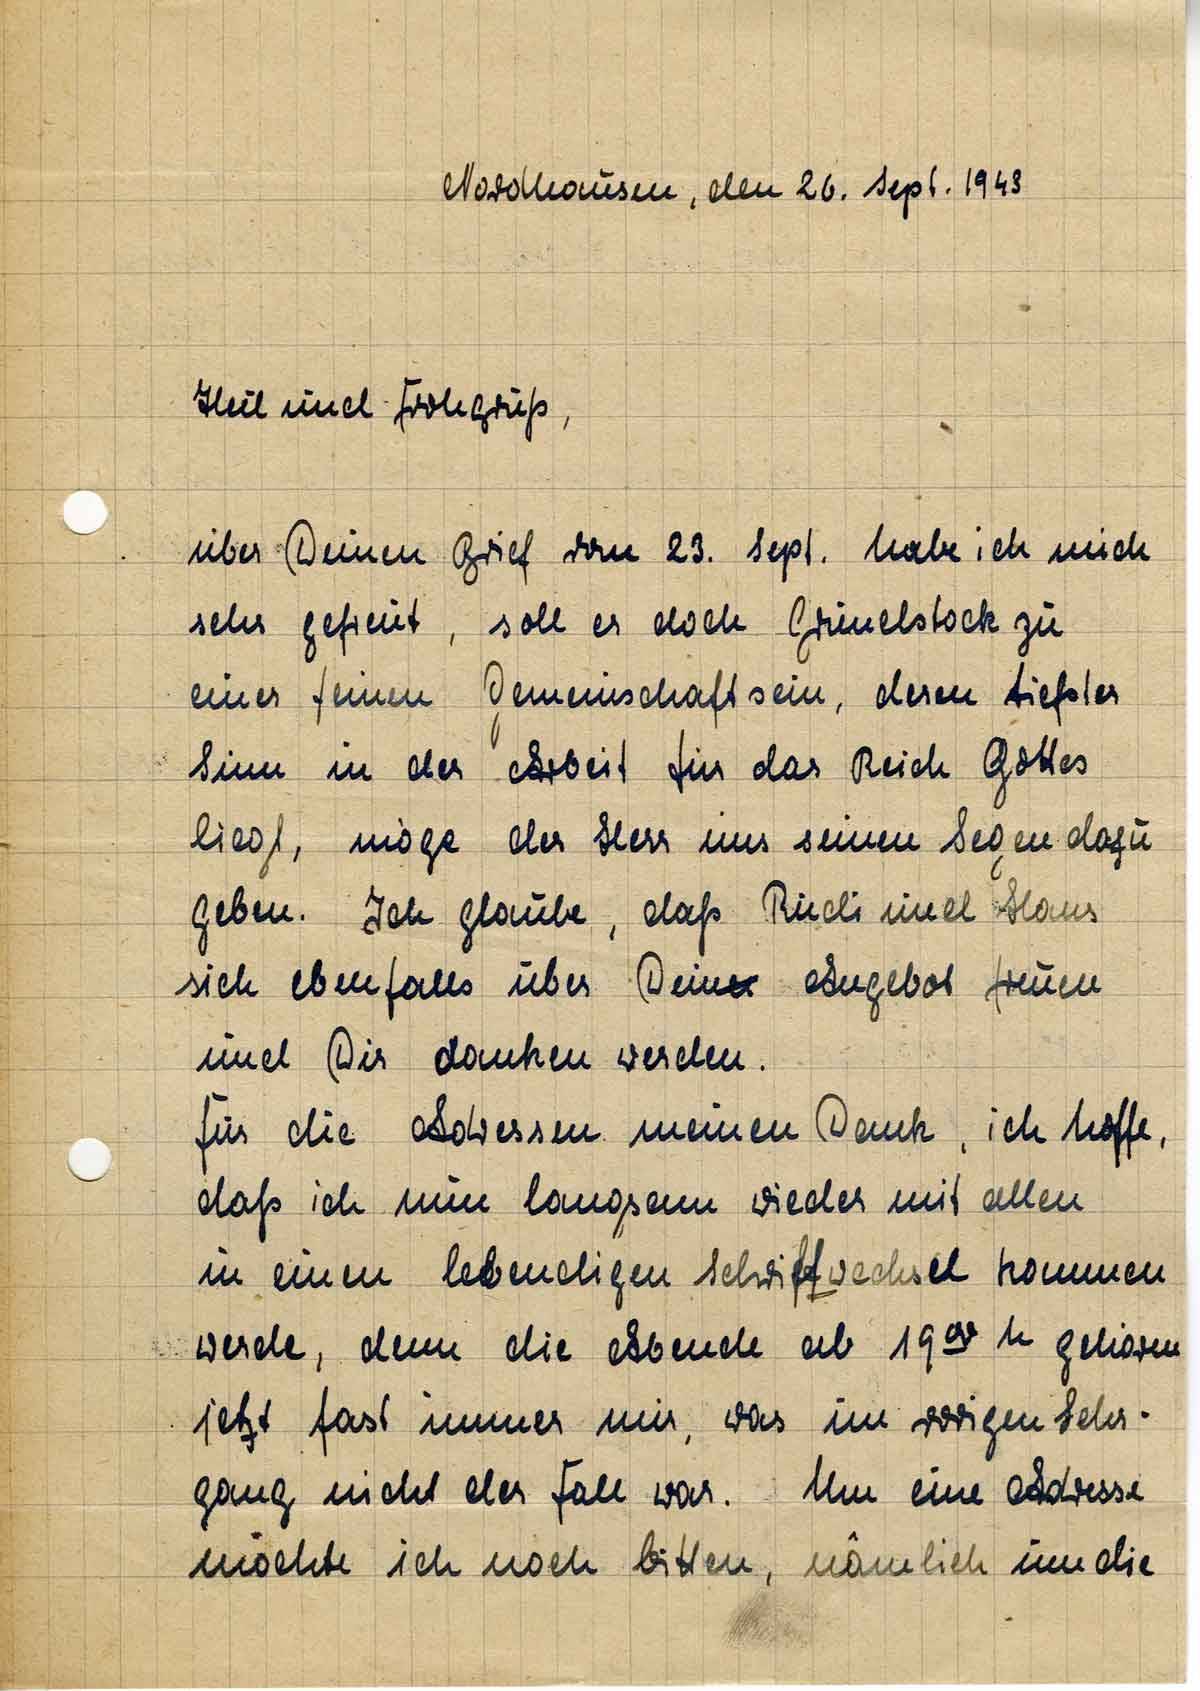 Nordhausen, den 26. Sept. 1943
Heil und Frohgruß,
über Deinen Brief vom 23. Sept. habe ich mich
sehr gefreut, soll es doch Grundstock zu
einer feinen Gemeinschaft sein, deren tiefster
Sinn in der Arbeit für das Reich Gottes
liegt, möge der Herr uns seinen Segen dazu
geben. Ich glaube, daß Rudi und Hans
sich ebenfalls über Dein Angebot freuen
und Dir danken werden.
Für die Adressen meinen Dank, ich hoffe,
daß ich nun langsam wieder mit allen
in einen lebendigen Schriftwechsel kommen
werde, denn die Abende ab 19⁰⁰ h gehören
jetzt fast immer mir, was im vorigen Lehr-
gang nicht der Fall war. Um eine Adresse
möchte ich noch bitten, nämlich um die